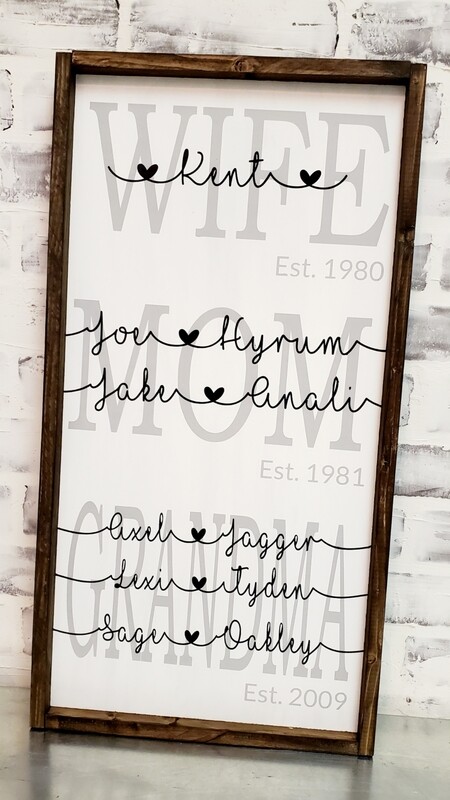 WIFE
Kent
Est. 1980
MOM
Joe Hyrum
Jake Anali
Est. 1981
GRANDMA
Axel Jagger
Lexi Tyden
Sage Oakley
Est. 2009